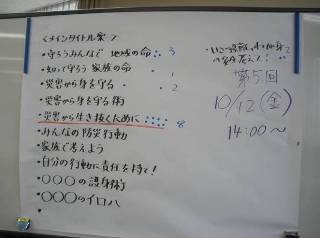 <メインタイトル案>
・守ろうみんなで 地域の命 3
・知って守ろう 家族の命 1
・災害から身を守る 2
・災害から身を守る術
・災害から生き抜くために 8
・みんなの防災行動
・家族で考えよう
・自分の行動に責任を持て!
・○○○の護身術
・○○○のイロハ
・
・いざ避難、
第5回
10/12(金)
14:00〜